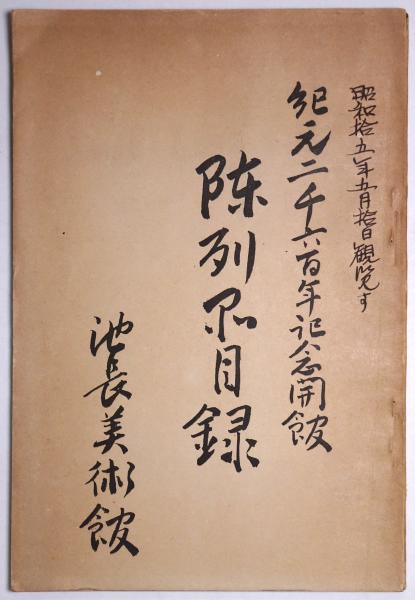 昭和拾五年五月拾日観覧す
紀元二千六百年記念開館
陳列品目録
池長美術館